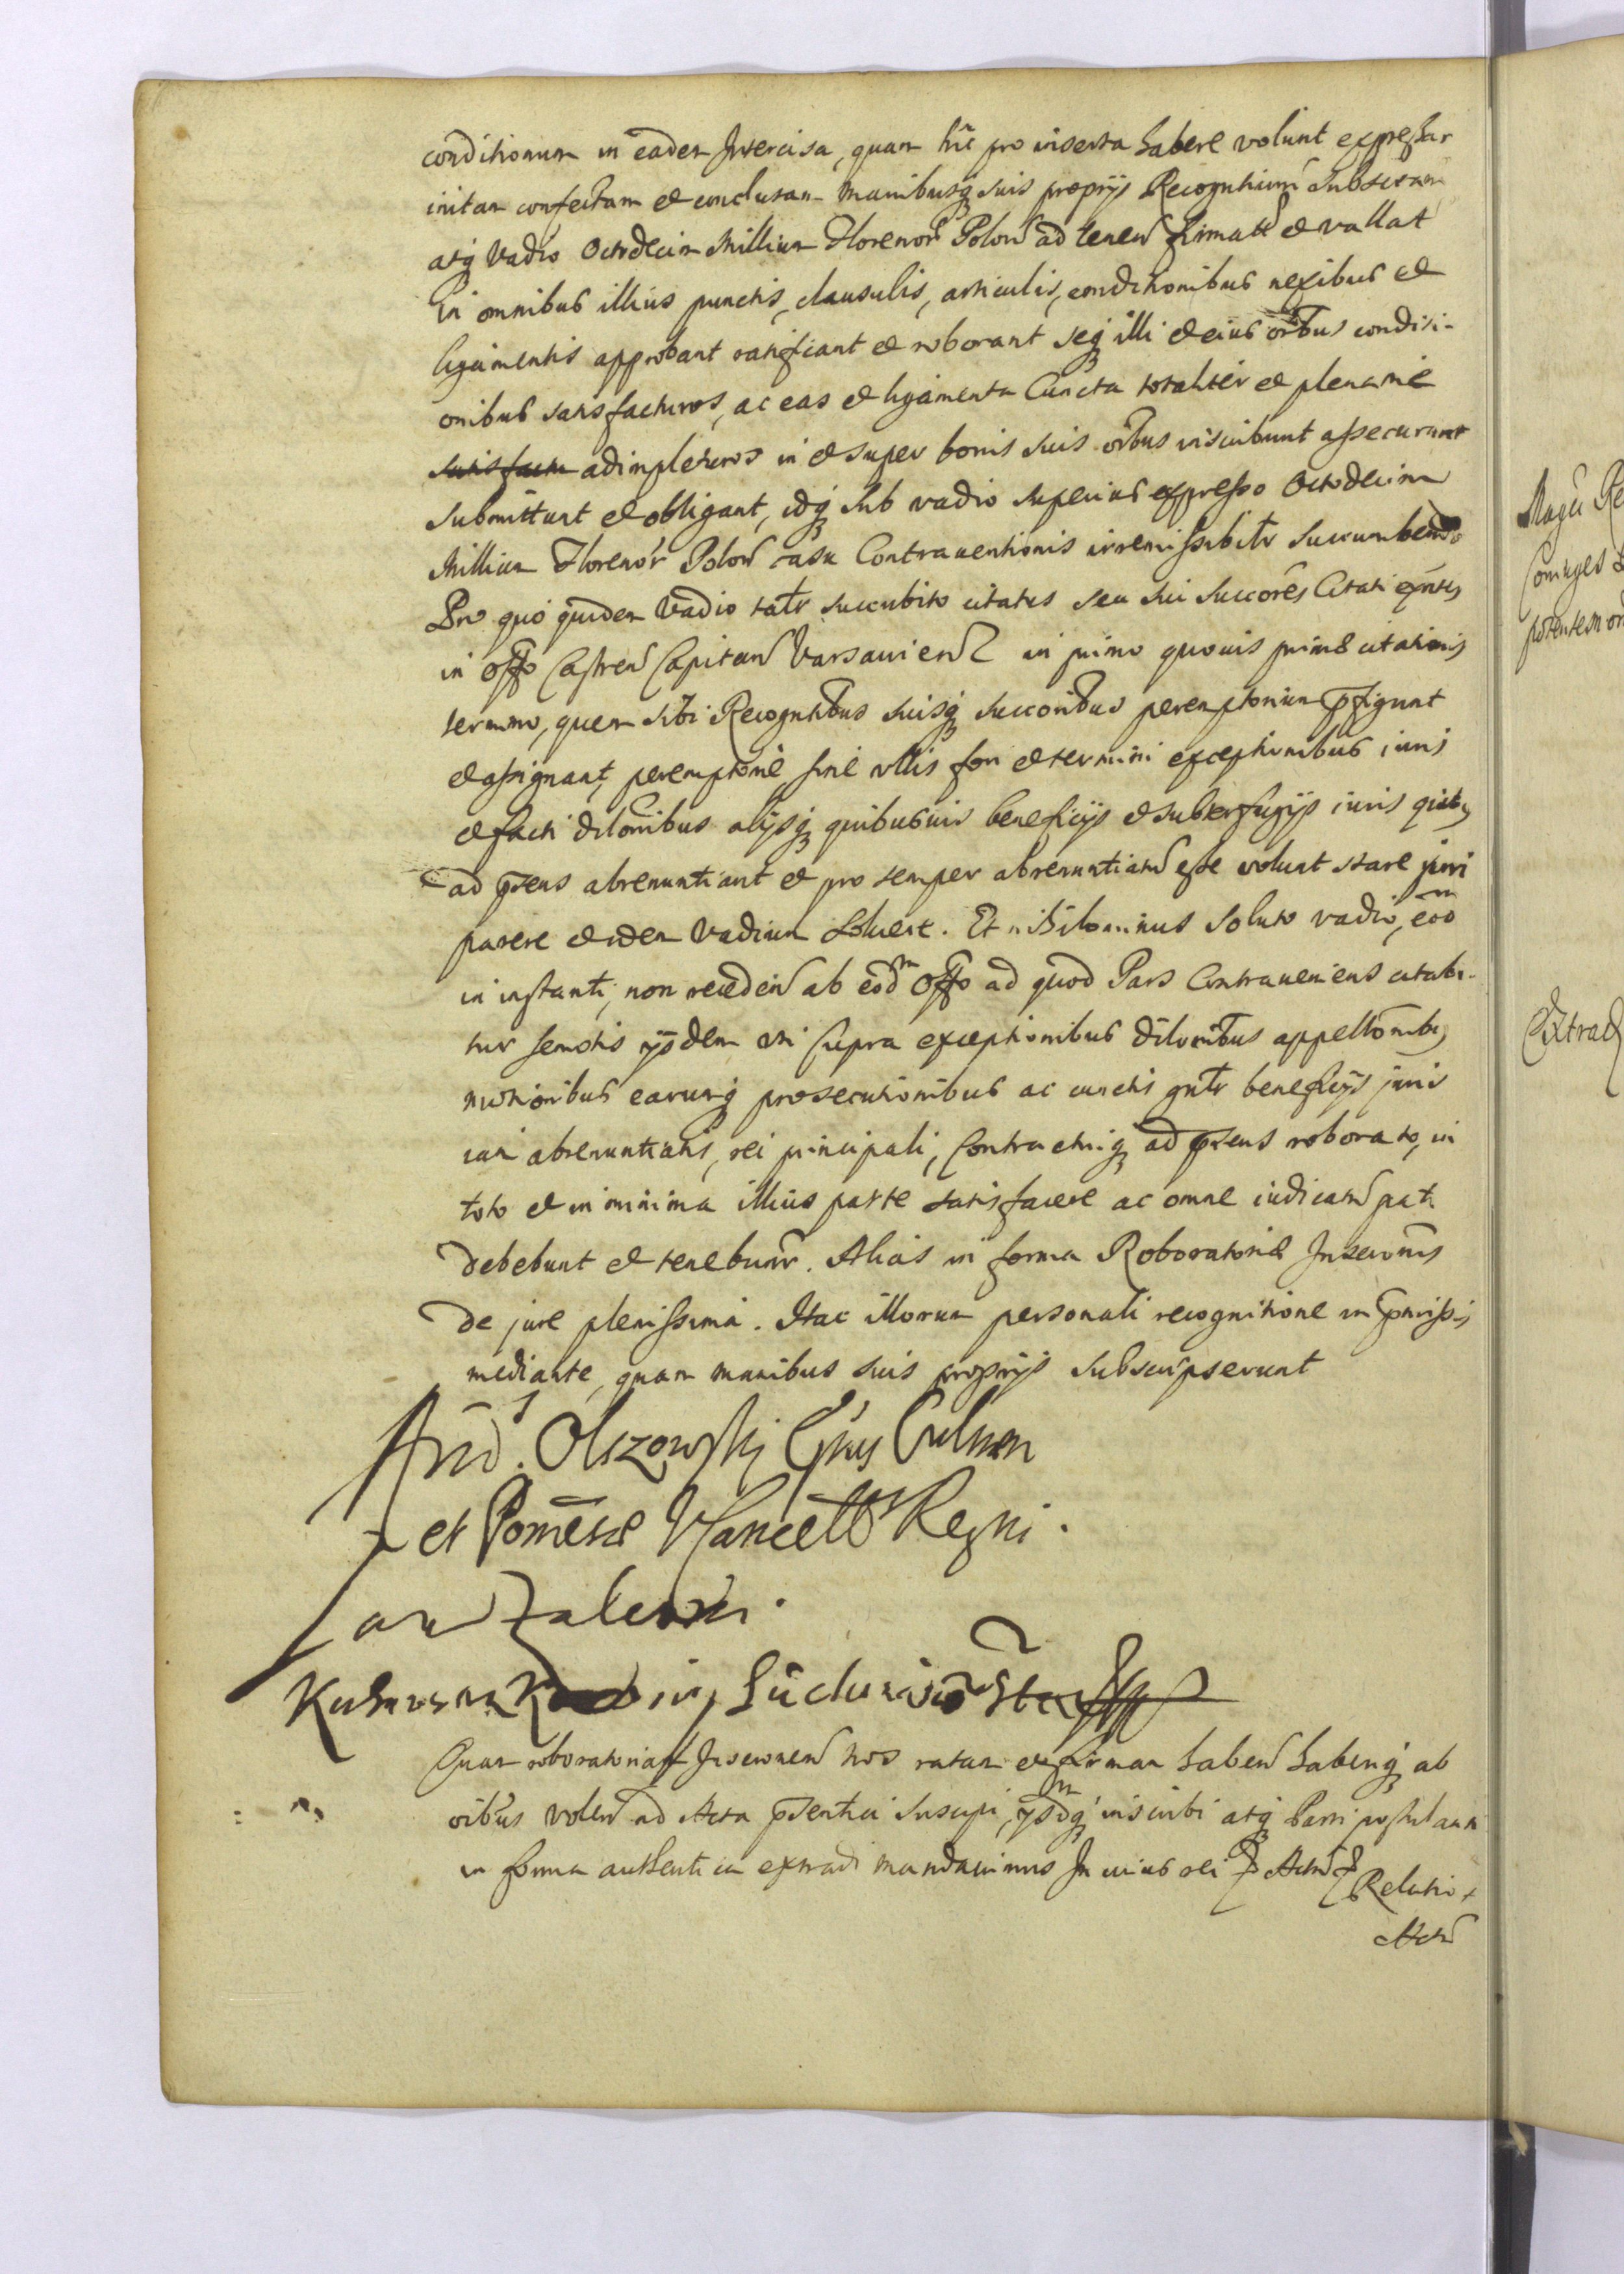 conditionum in eadem Intercisa, quam hic pro inserta habere volunt expressar
initam confectam et conclusam manibusq suis proprijs Recognitium Subscriptam
atq Vadio Octodecim Millium Florenor Polon ad tenen firmatt et vallat
In omnibus illius punctis, clausulis, articulis, conditionibus nexibus et
ligamentis approbant ratificant et roborant seq illi et eius oibus conditi-
onibus satisfacturos, ac eas et ligamenta Cuncta totaliter et plenarie
adimpleturos in et super bonis suis oibus inscribunt assecurant
submittunt et obligant, idq sub vadio superius expresso Octodecim
Millium Florenor Polon casu Contrauentionis irremissibiltr succumbendo
Pro quo quidem Vadio tatr succubito citatus seu sui succores Citati exntes
in Offo Castren Capitan Varsauien in primo quouis primae citationis
termino, quem sibi Recogntibus suisq succoribus peremptorium pfigunt
et assignant, peremptorie sine ullis fori et termini exceptionibus iuris
et facti dilonibus alijsq quibusuis beneficijs et subterfugijs iuris quibus
ad psens abrenuntiant et pro semper abrenuntiatu esse volunt stare juri
parere et idem Vadium soluere. Et nihilominus soluto vadio, eod m
in instanti, non receden ab eod m Offo ad quod Pars Contraueniens citabi-
tur semotis ijsdem uti supra exceptionibus dilonibus appellonibus
motionibus earumq prosecutionibus ac cunctis gntr beneficijs juris
iam abrenuntiatis, rei principali, Contractuiq ad psens roborato, in
toto et in minima illius parte satisfacere ac omne iudicatu pati
debebunt et tenebuntr. Alias in forma Roboratoriae Inscronis
de jure plenissima. Hac illorum personali recognitione in pmissis
mediante, quam manibus suis proprijs subscripserunt
And. Olszowski Eppus Culmen
et Pomesae VCancells Regni.
Jan Zaleski.
Quam roboratoriam Inscronem nos ratam et firmam haben haberiq ab
oibus volen ad Acta psentia suscipi, ijsdq m inscribi atq Parti postulanti
in forma authentica extradi mandauimus In cuius rei P Actu P
Relatio
Actu
Magci Re
Coniuges
potentem
Extrad